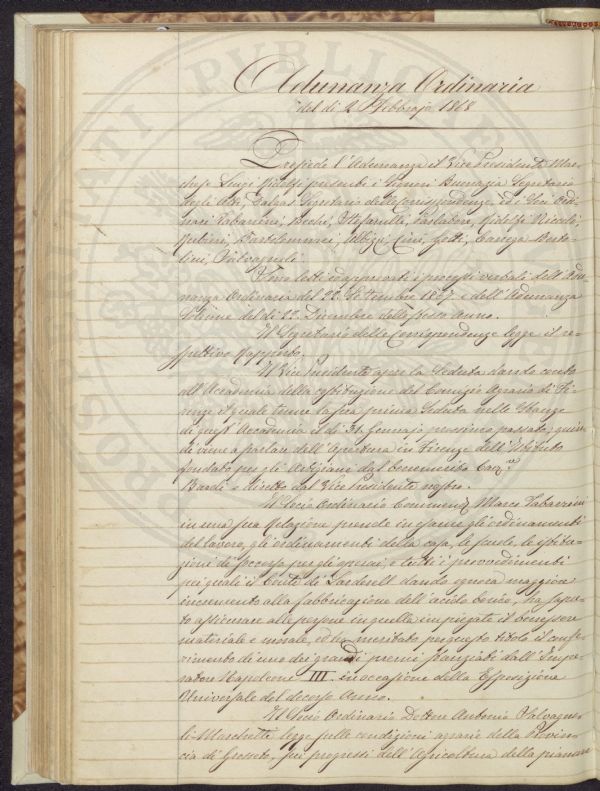 Adunanza Ordinaria
del dì 2 Febbrajo 1868
Presiede l'Adunanza il Vice Presidente Mar-
chese Luigi Ridolfi presenti i Signori Buonazia Segretario
degli Atti, Segretario delle Corrispondenze, ed i Soci Ordi-
nari Tabarrini, Bechi, Taglabue, Ridolfi Niccolò,
Rubieri, Bartolommei, Albizzi, Cini, Gotti, Carega Berto-
lini, Salvagnoli.
Sono letti ed approvati i processi verbali dell'Adu-
nanza Ordinaria del 22 Settembre 1867 e dell'Adunanza
Solenne del dì 22 Dicembre dello stesso Anno.
Il Segretario delle Corrispondenze legge il re-
spettivo Rapporto.
Il Vice Presidente apre la Seduta dando conto
all'Accademia della costituzione del Comizio Agrario di Fi-
renze il quale tenne la sua prima Seduta nelle Stanze
di quest'Accademia il dì 31 Gennajo prossimo passato; quin-
di viene a parlare dell'Apertura in Firenze dell'Istituto
fondato per gli Artigiani dal benemerito Cav.re
Bardi e diretto dal Vice Presidente nostro.
Il Socio Ordinario Commend. Marco Tabarrini
in una sua Relazione prende in esame gli ordinamenti
del lavoro, gli ordinamenti della casa, le scuole, le istitu-
zioni di soccorso per gli operai, e tutti i provvedimenti
pei quali il Conte di Larderell dando ognora maggiore
incremento alla fabbricazione dell'acido borico, ha sapu-
to assicurare alle persone in quella impiegate il benessere
materiale e morale, ed ha meritato per questo titolo il confe-
rimento di uno dei grandi premi stanziati dall'Impe-
ratore Napoleone III in occasione della Esposizione
Universale del decorso Anno.
Il Socio Ordinario Dottore Antonio Salvagno-
li-Marchetti legge sulle condizioni agrarie della Provin-
cia di Grosseto, sui progressi dell'Agricoltura della pianura